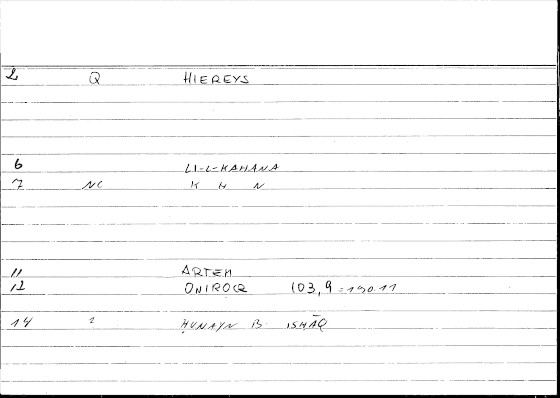 2 Q HIEREYS
6 LI-L-KAHANA
7 NC K H N
11 ARTEM
12 ONIROCR 103,9 = 190.11
14 2 ḤUNAYN B ISḤĀQ